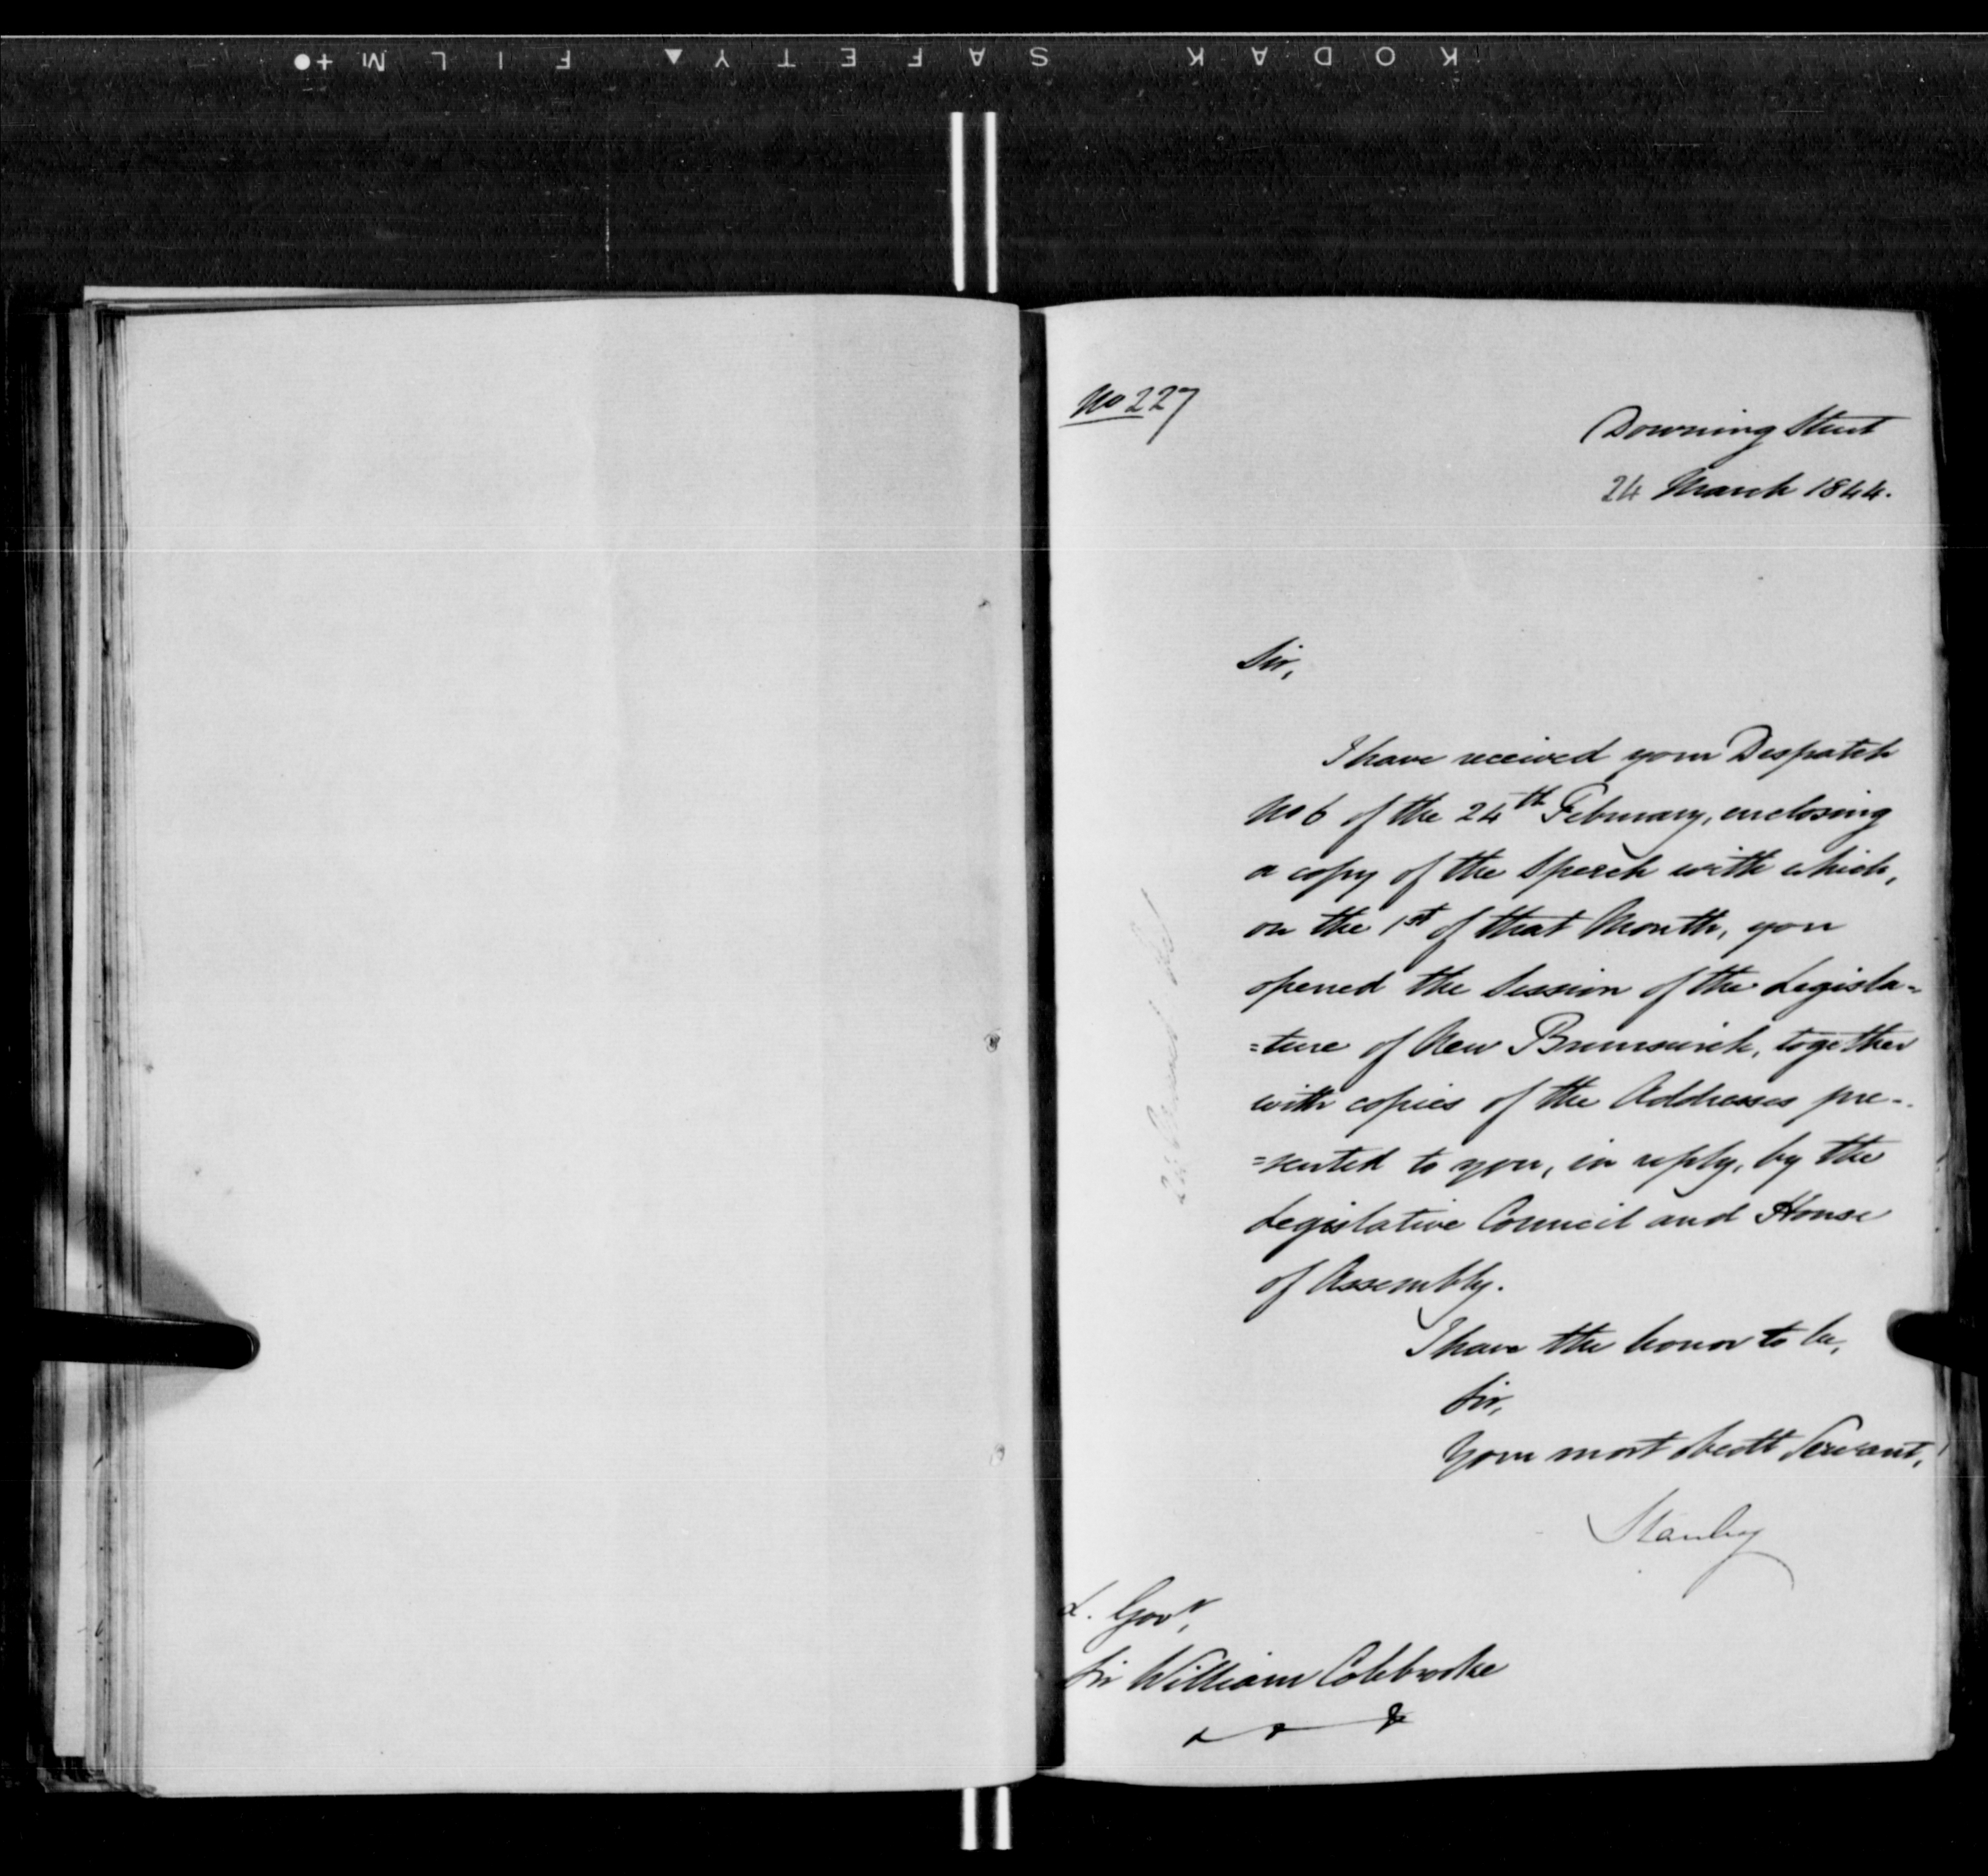 KODAK SAFETY FILM
No 227
Downing Street
24 March 1844.
Sir,
I have received your Despatch
No 6 of the 24th February, enclosing
a copy of the Speech with which,
on the 1st of that Month, you
opened the Session of the Legisla=
=ture of New Brunswick, together
with copies of the Addresses pre=
=sented to you, in reply, by the
Legislative Council and House
of Assembly.
I have the honor to be,
Sir,
Your most obedt Servant,
Stanley
L. Govr,
Sir William Colebrooke